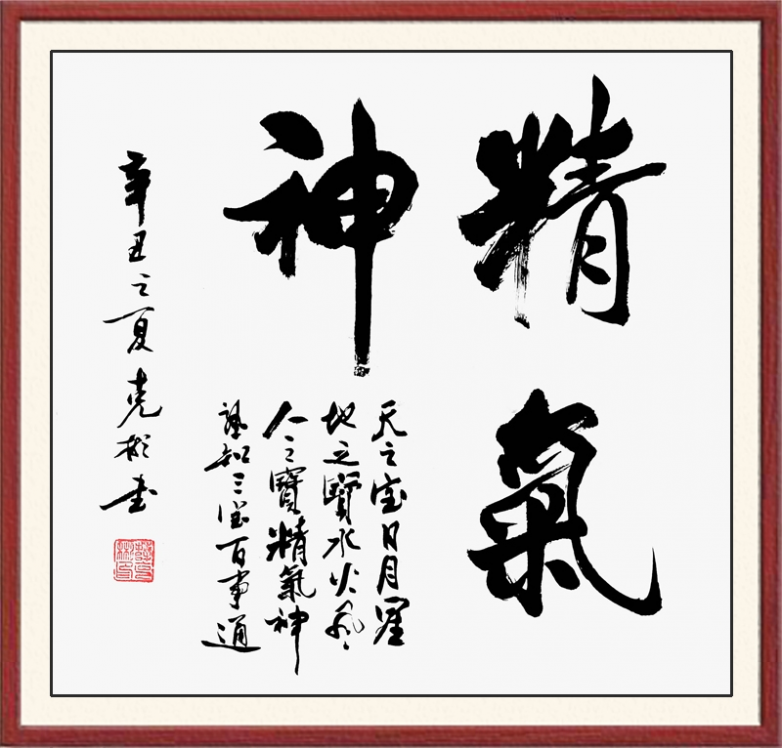 精氣
神
天之宝日月星
地之寶水火风
人之寶精氣神
知三宝百事通
辛丑之夏克彬书